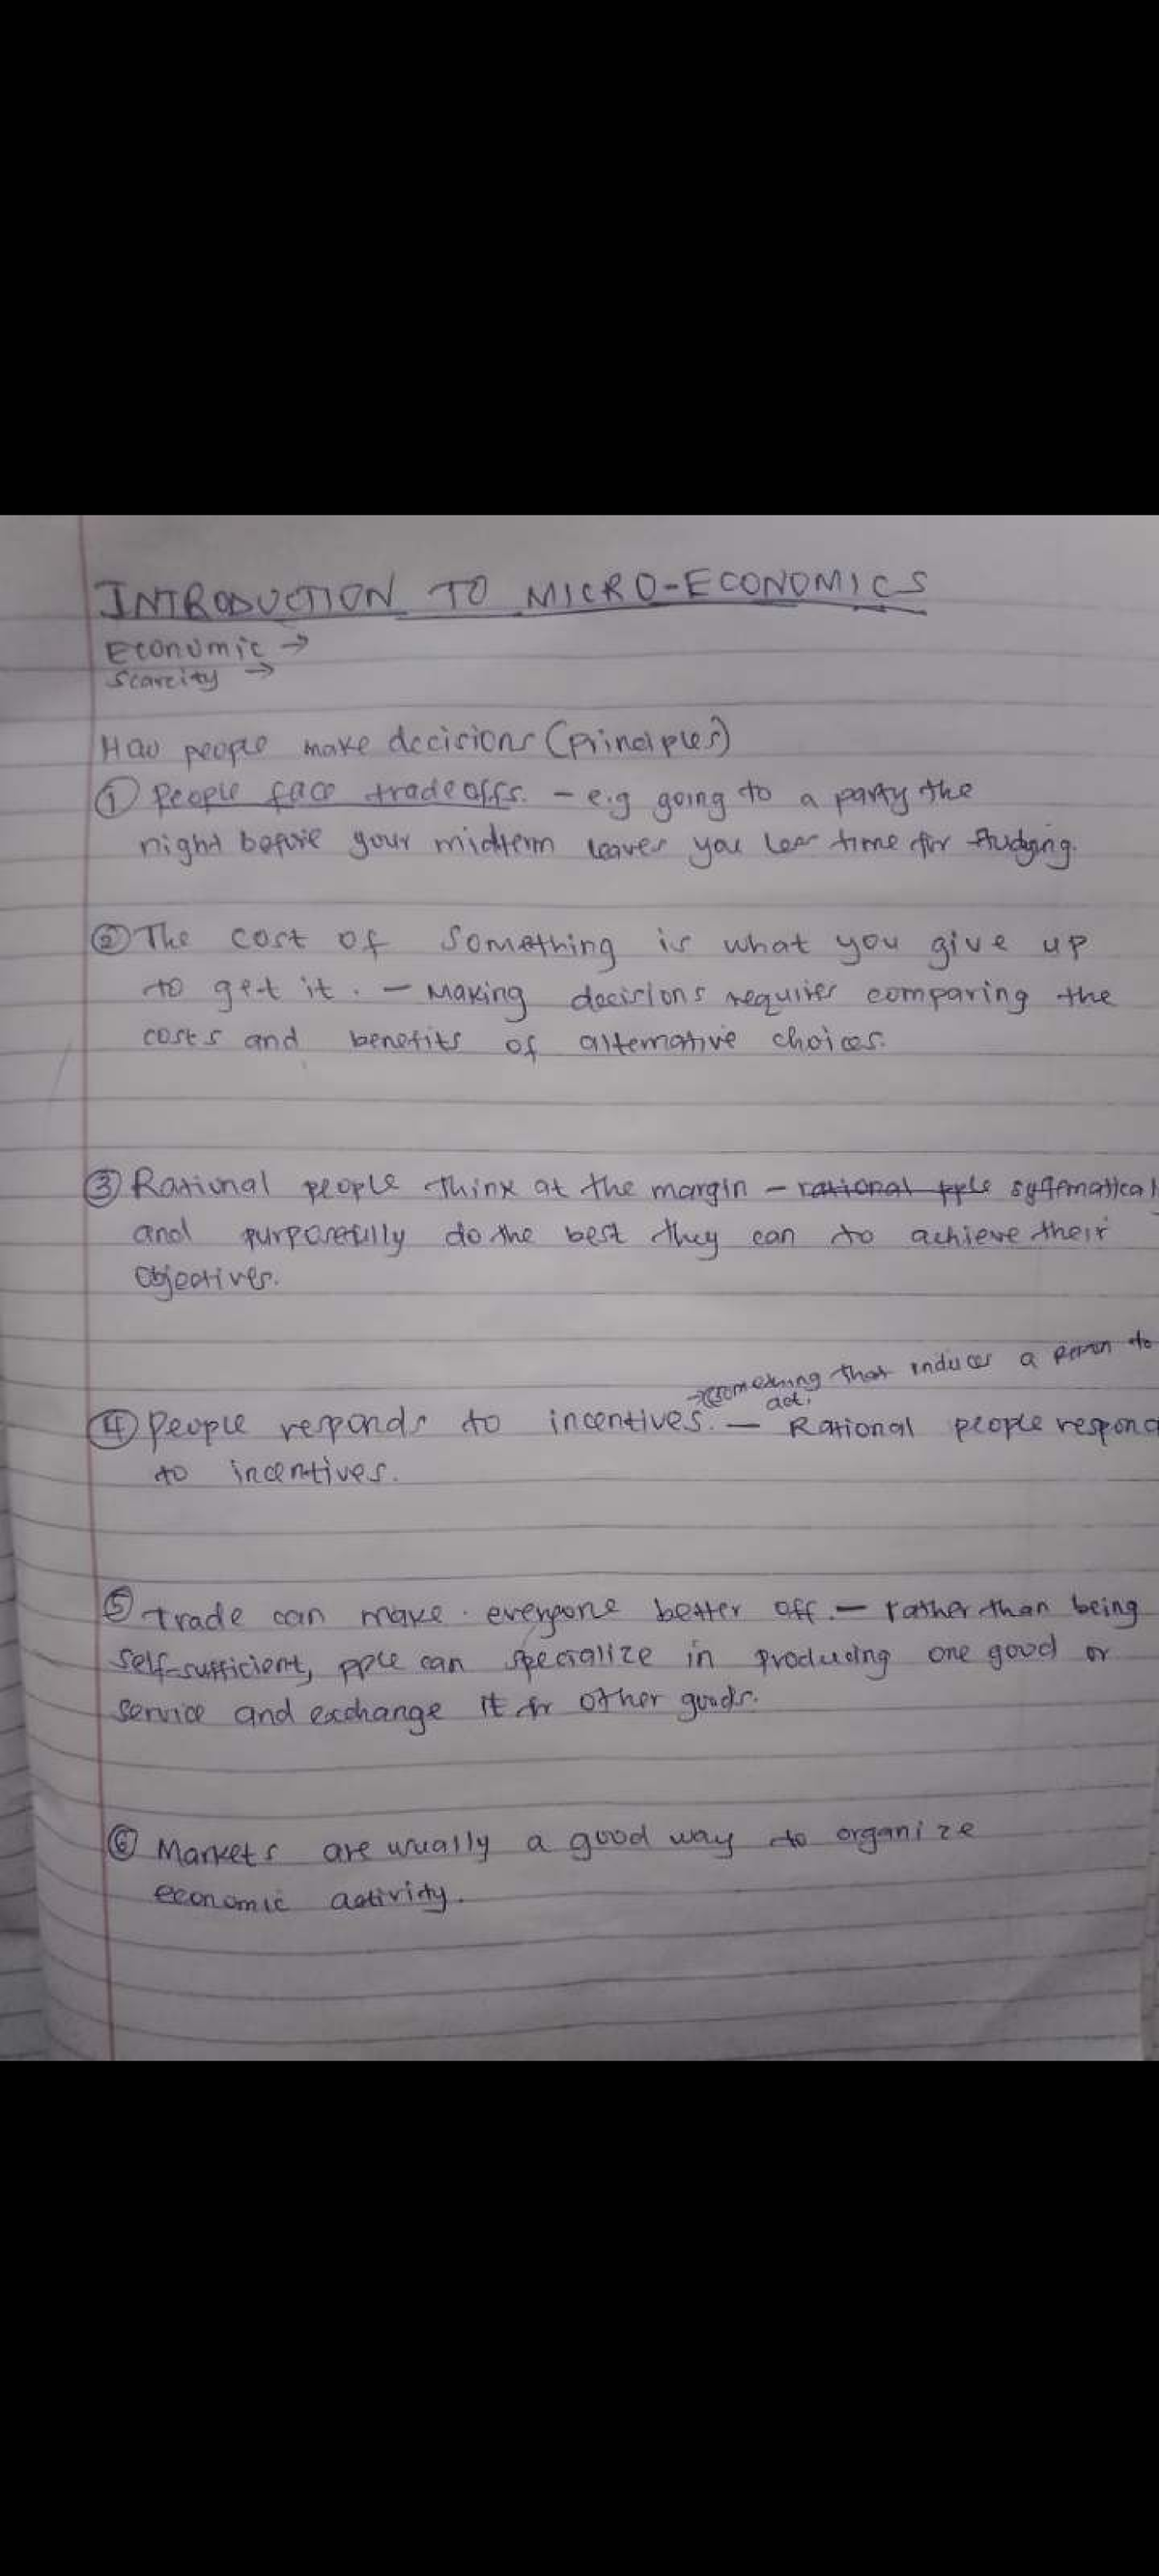 INTRODUCTION TO MICRO-ECONOMICS
Economic →
Scarcity →
How people make decisions (principles)
① People face tradeoffs. - e.g going to a party the
night before your midterm leaves you less time for studying.
② The cost of something is what you give up
to get it. - Making decisions requires comparing the
costs and benefits of alternative choices.
③ Rational people think at the margin - rational pple systematical
and purposefully do the best they can to achieve their
objectives.
→ something that induces a person to
act.
④ People responds to incentives. - Rational people respond
to incentives.
⑤ trade can make everyone better off. - rather than being
self-sufficient, pple can specialize in producing one good or
service and exchange it for other goods.
⑥ Markets are usually a good way to organize
economic activity.